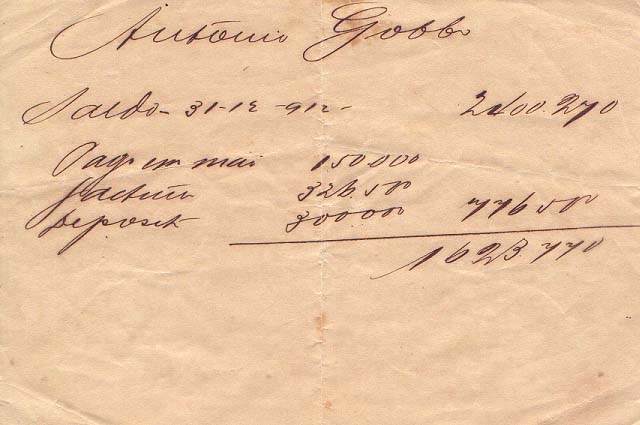 Antonio Gobbo
Saldo - 31-12-912- 2400.270
Pagr em mai 150.000
factura 326.500
Deposit 300000 776500
1623.770